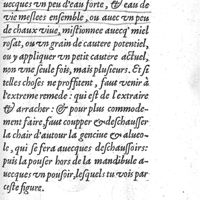 auecques vn peu d'eau forte, & eau de
vie meslees ensemble, ou auec vn peu
de chaux viue, mistionnee auecq' miel
rosat, ou vn grain de cautere potentiel,
ou y appliquer vn petit cautere actuel,
non vne seule fois, mais plusieurs. Et si
telles choses ne proffitent, faut venir à
l'extreme remede: qui est de l'extraire
& arracher: & pour plus commode-
ment faire, faut coupper & deschausser
la chair d'autour la genciue & alueo-
le, qui se fera auecques deschaussoirs:
puis la pouser hors de la mandibule a-
uecques vn pousoir, lesquels tu vois par
ceste figure.